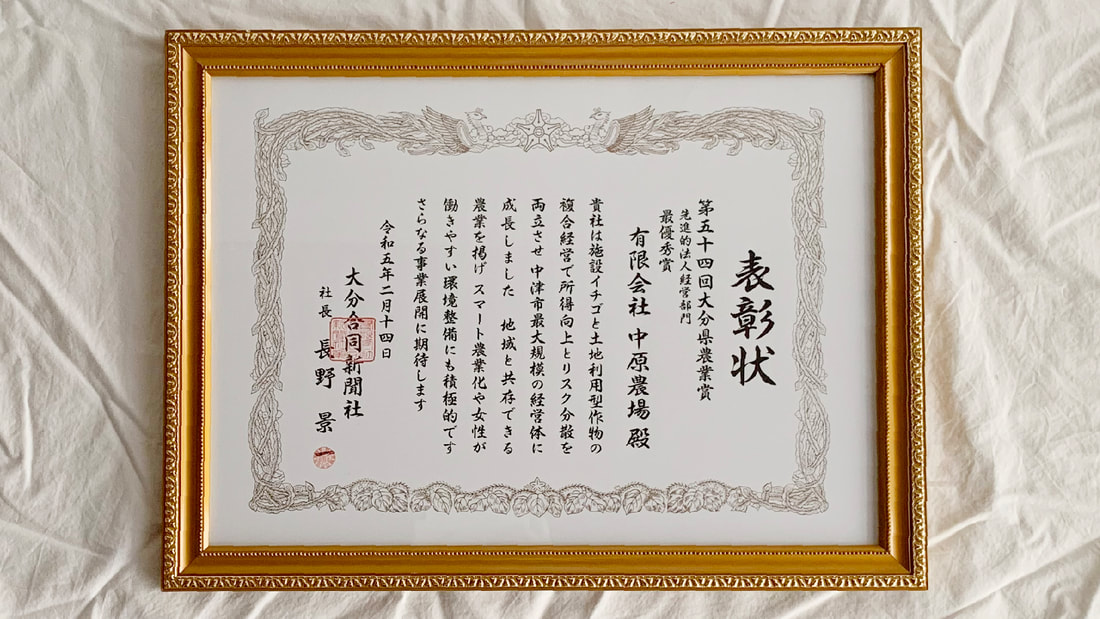 表彰状
第五十四回大分県農業賞
先進的法人経営部門
最優秀賞
有限会社 中原農場 殿
貴社は施設イチゴと土地利用型作物の
複合経営で所得向上とリスク分散を
両立させ 中津市最大規模の経営体に
成長しました 地域と共存できる
農業を掲げ スマート農業化や女性が
働きやすい環境整備にも積極的です
さらなる事業展開に期待します
令和五年二月十四日
大分合同新聞社
社長 長野 景一